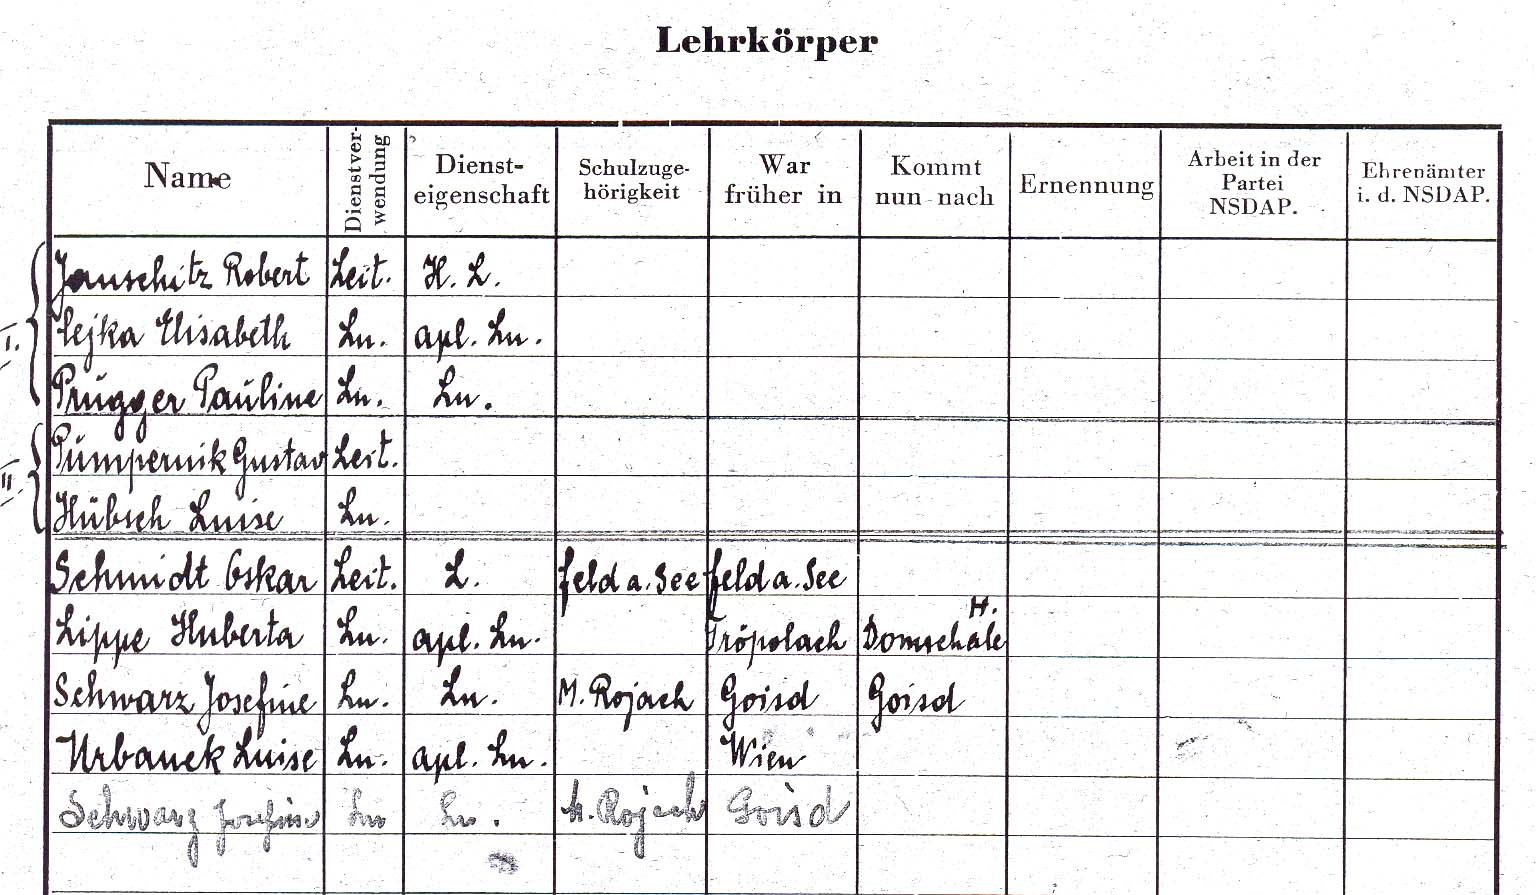 Lehrkörper
Name Dienstver-wendung Dienst-eigenschaft Schulzuge-hörigkeit War früher in Kommt nun nach Ernennung Arbeit in der Partei NSDAP. Ehrenämter i. d. NSDAP.
I.
Jauschitz Robert Leit. H. L.
Cejka Elisabeth Ln. apl. Ln.
Prugger Pauline Ln. Ln.
II
Pumpernik Gustav Leit.
Hübsch Luise Ln.
Schmidt Oskar Leit. L. feld a. See feld a. See
H.
Lippe Huberta Ln. apl. Ln. Tröpolach
Schwarz Josefine Ln. Ln. M. Rojach Goisd Goisd
Urbanek Luise Ln. apl. Ln. Wien
Schwarz Josefine Ln Ln. M. Rojach Goisd